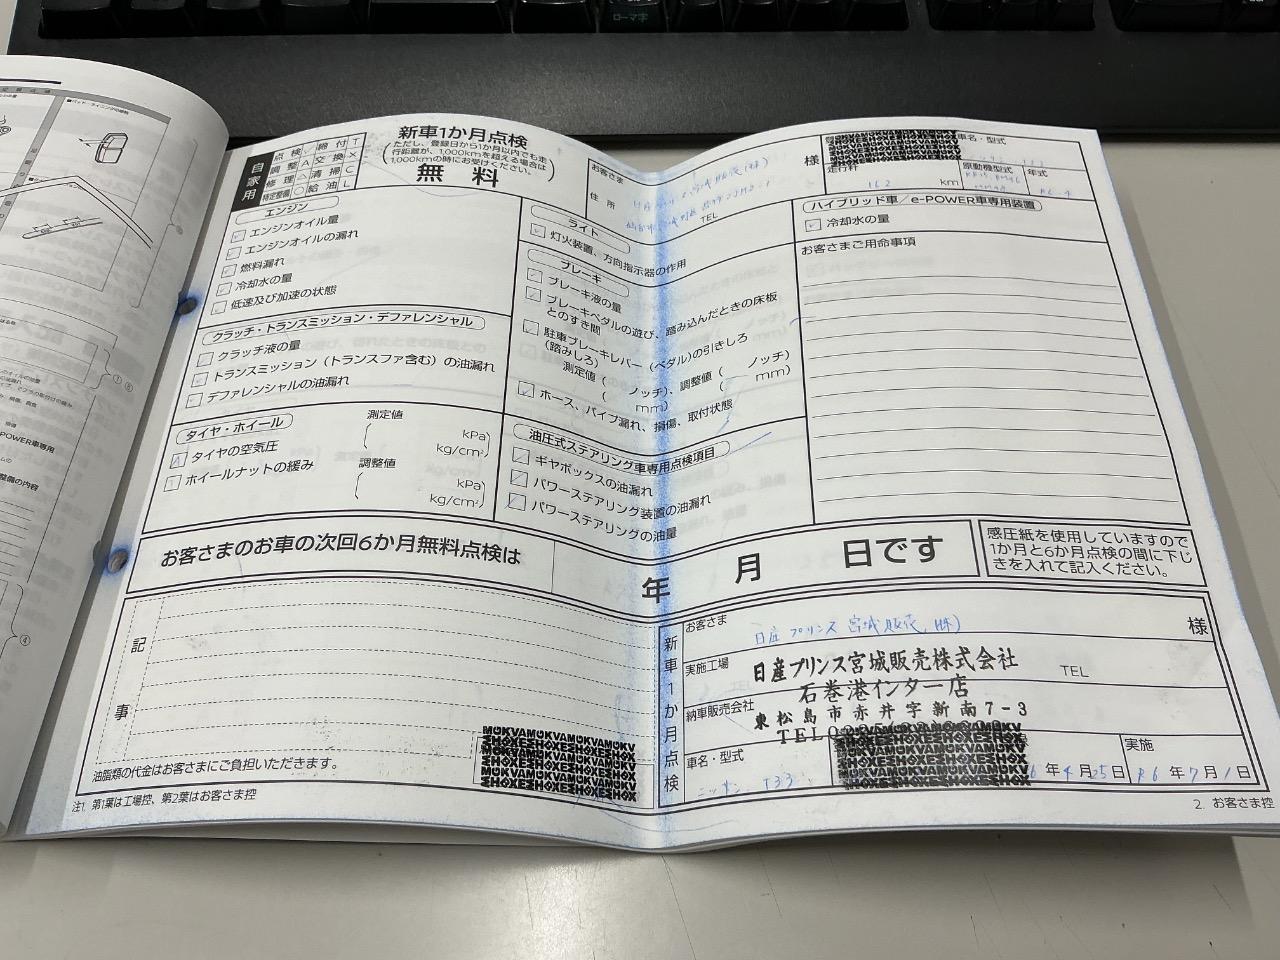 ローマキ
新車1か月点検
(ただし、登録日から1か月以内でも走
行距離が、1,000kmを超える場合は
1,000kmの時にお受けください。)
無 料
自家用
点検 ✓ 締付 T
調整 A 交換 ×
修理 △ 清掃 C
特定整備 ○ 給油 L
お客さま
様
住所
TEL
車名・型式
走行粁
162 km
原動機型式
年式
エンジン
エンジンオイル量
エンジンオイルの漏れ
燃料漏れ
冷却水の量
低速及び加速の状態
クラッチ・トランスミッション・デファレンシャル
クラッチ液の量
トランスミッション(トランスファ含む)の油漏れ
デファレンシャルの油漏れ
タイヤ・ホイール
タイヤの空気圧
ホイールナットの緩み
測定値
( kPa
kg/cm²)
調整値
( kPa
kg/cm²)
ライト
灯火装置、方向指示器の作用
ブレーキ
ブレーキ液の量
ブレーキペダルの遊び、踏み込んだときの床板
とのすき間
駐車ブレーキレバー(ペダル)の引きしろ
(踏みしろ)
測定値( ノッチ)、調整値( ノッチ)
( mm) ( mm)
ホース、パイプ漏れ、損傷、取付状態
油圧式ステアリング車専用点検項目
ギヤボックスの油漏れ
パワーステアリング装置の油漏れ
パワーステアリングの油量
ハイブリッド車/e-POWER車専用装置
冷却水の量
お客さまご用命事項
お客さまのお車の次回6か月無料点検は 年 月 日です
感圧紙を使用していますので
1か月と6か月点検の間に下じ
きを入れて記入ください。
記事
油脂類の代金はお客さまにご負担いただきます。
新車1か月点検
お客さま
日産プリンス宮城販売(株) 様
実施工場
日産プリンス宮城販売株式会社
石巻港インター店
TEL
納車販売会社
東松島市赤井字新南7-3
車名・型式
ニッサン T33
6年4月25日
実施
R6年7月1日
注1. 第1葉は工場控、第2葉はお客さま控
2. お客さま控